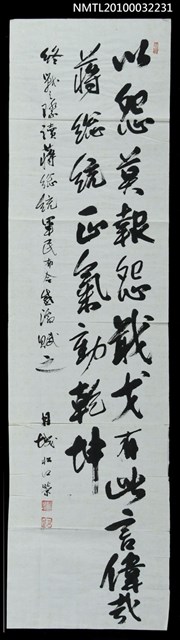 NMTL20100032231
以怨莫報怨戢戈有此言偉哉
蔣總統正氣動乾坤
終戰之際讀蔣總統軍民布令感激賦之